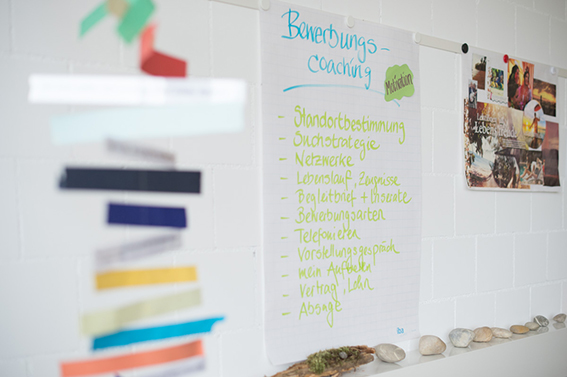 Bewerbungs-
coaching
Motivation
- Standortbestimmung
- Suchstrategie
- Netzwerke
- Lebenslauf, Zeugnisse
- Begleitbrief + Inserate
- Bewerbungsarten
- Telefonieren
- Vorstellungsgespräch
- mein Auftreten
- Vertrag, Lohn
- Absage
Lebensfreude